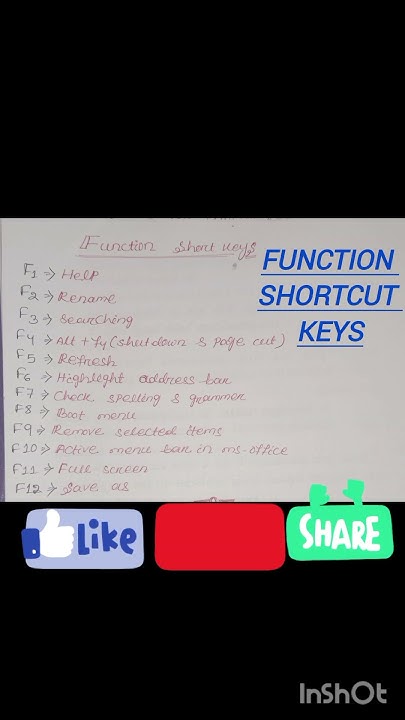 Function Short Keys
FUNCTION
SHORTCUT
KEYS
F1 => Help
F2 => Rename
F3 => Searching
F4 => Alt + F4 (shut down & page cut)
F5 => Refresh
F6 => Highlight address bar
F7 => Check spelling & grammer
F8 => Boot menu
F9 => Remove selected items
F10 => Active menu bar in ms-office
F11 => Full screen
F12 => Save as
Like
SHARE
InShOt